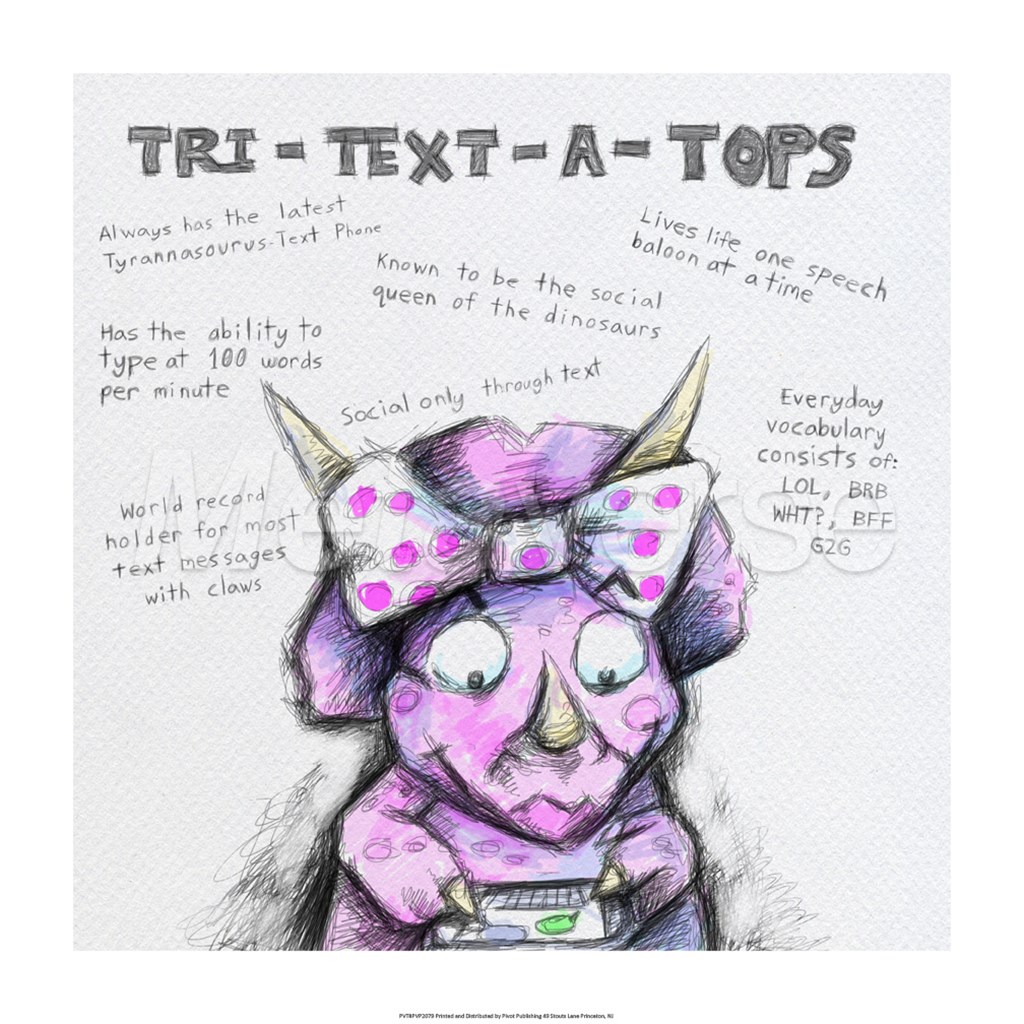 TRI-TEXT-A-TOPS
Always has the latest
Tyrannasourus-Text Phone
Lives life one speech
baloon at a time
Known to be the social
queen of the dinosaurs
Has the ability to
type at 100 words
per minute
Social only through text
Everyday
vocabulary
consists of:
LOL, BRB
WHT?, BFF
G2G
World record
holder for most
text messages
with claws
PVT8PVP2079 Printed and Distributed by Pivot Publishing 49 Stouts Lane Princeton, NJ